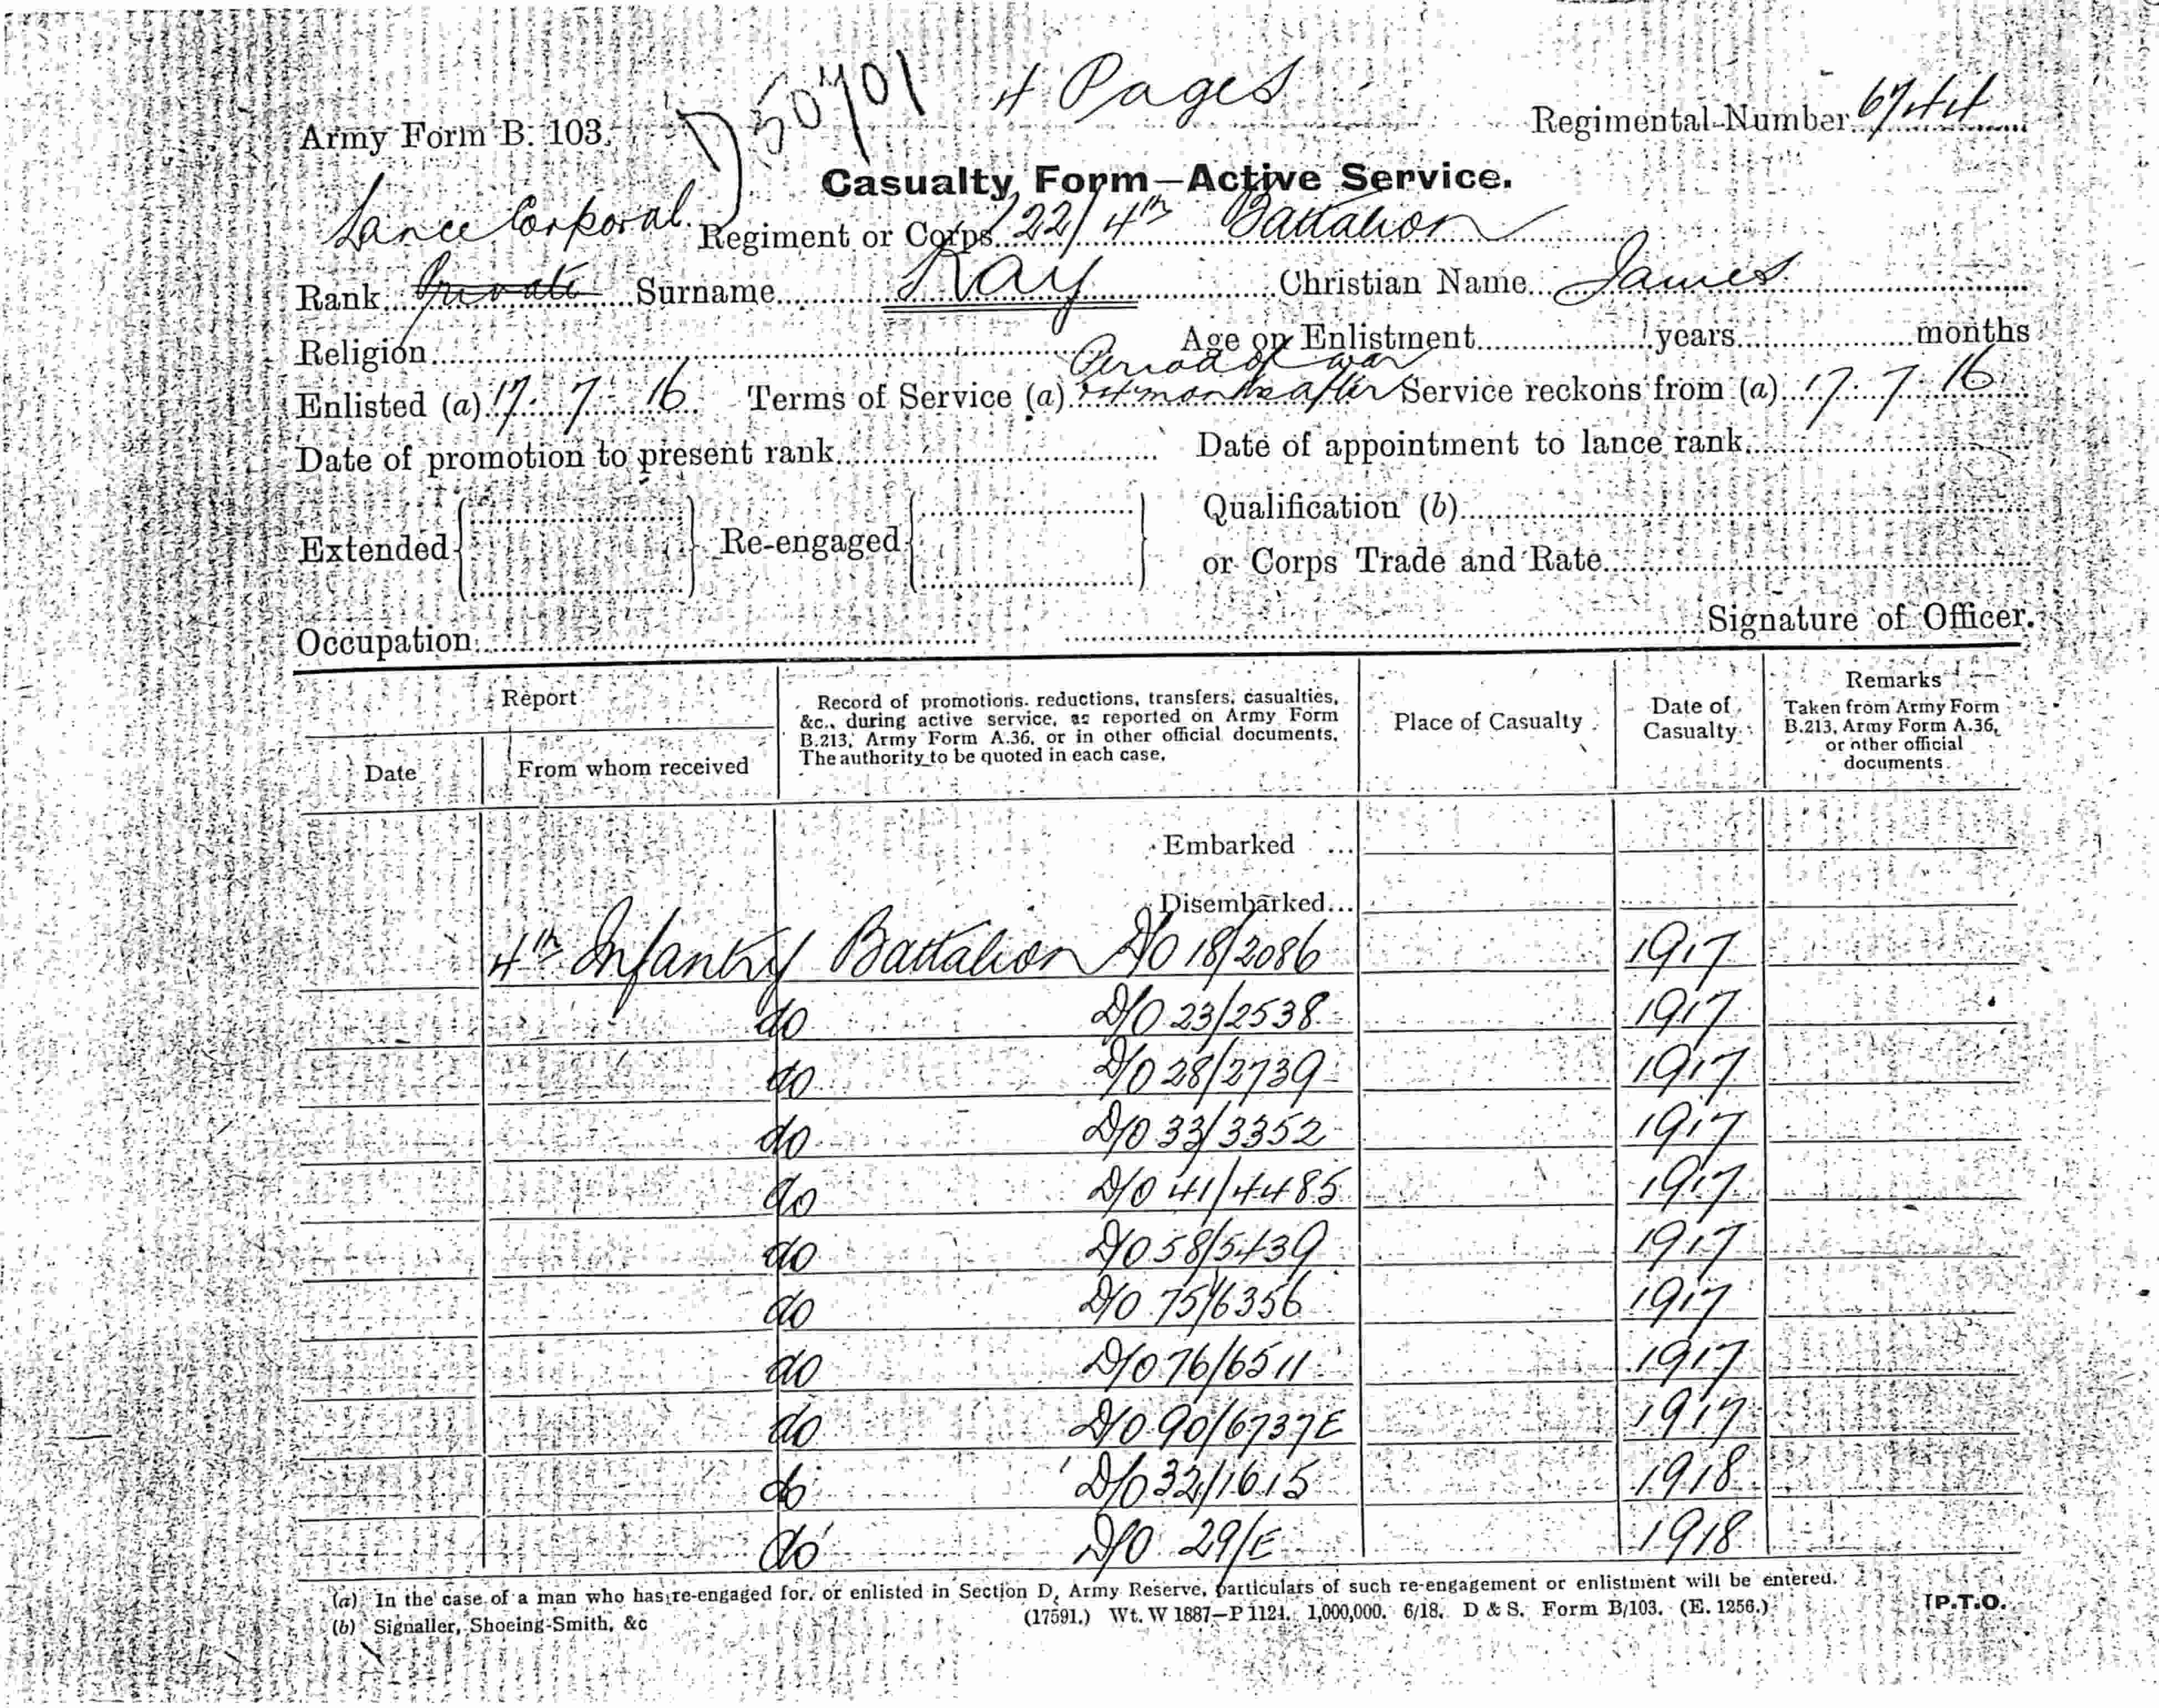 D50701 4 Pages
Army Form B. 103. Regimental Number 6744
Casualty Form—Active Service.
Lance Corporal. Regiment or Corps 22/4th Battalion
Rank Private Surname Kay Christian Name James
Religion Age on Enlistment years months
Period of war
Enlisted (a) 17. 7. 16 Terms of Service (a) 4 months after Service reckons from (a) 17. 7. 16
Date of promotion to present rank Date of appointment to lance rank
Extended Re-engaged Qualification (b)
or Corps Trade and Rate
Occupation Signature of Officer.
Report Record of promotions, reductions, transfers, casualties, &c., during active service, as reported on Army Form B.213, Army Form A.36, or in other official documents. The authority to be quoted in each case. Place of Casualty Date of Casualty Remarks Taken from Army Form B.213, Army Form A.36, or other official documents.
Date From whom received
Embarked ...
Disembarked...
4th Infantry Battalion D/O 18/2086 1917
do D/O 23/2538 1917
do D/O 28/2739 1917
do D/O 33/3352 1917
do D/O 41/4485 1917
do D/O 58/5439 1917
do D/O 75/6356 1917
do D/O 76/6511 1917
do D/O 90/6737E 1917
do D/O 32/1615 1918
do D/O 29/E 1918
(a) In the case of a man who has re-engaged for, or enlisted in Section D, Army Reserve, particulars of such re-engagement or enlistment will be entered.
(b) Signaller, Shoeing-Smith, &c (17591.) Wt. W 1887—P 1124. 1,000,000. 6/18. D & S. Form B/103. (E. 1256.) [P.T.O.